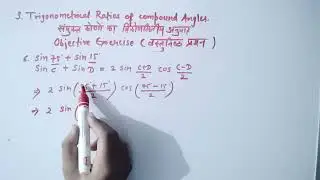 3. Trigonometrical Ratios of compound Angles.
संयुक्त कोणों का त्रिकोणमितीय अनुपात
Objective Exercise (वस्तुनिष्ठ प्रश्न)
6. sin 75 + sin 15
sin C + sin D = 2 sin C+D/2 cos C-D/2
⇒ 2 sin( +15/2) cos(75-15/2)
⇒ 2 sin